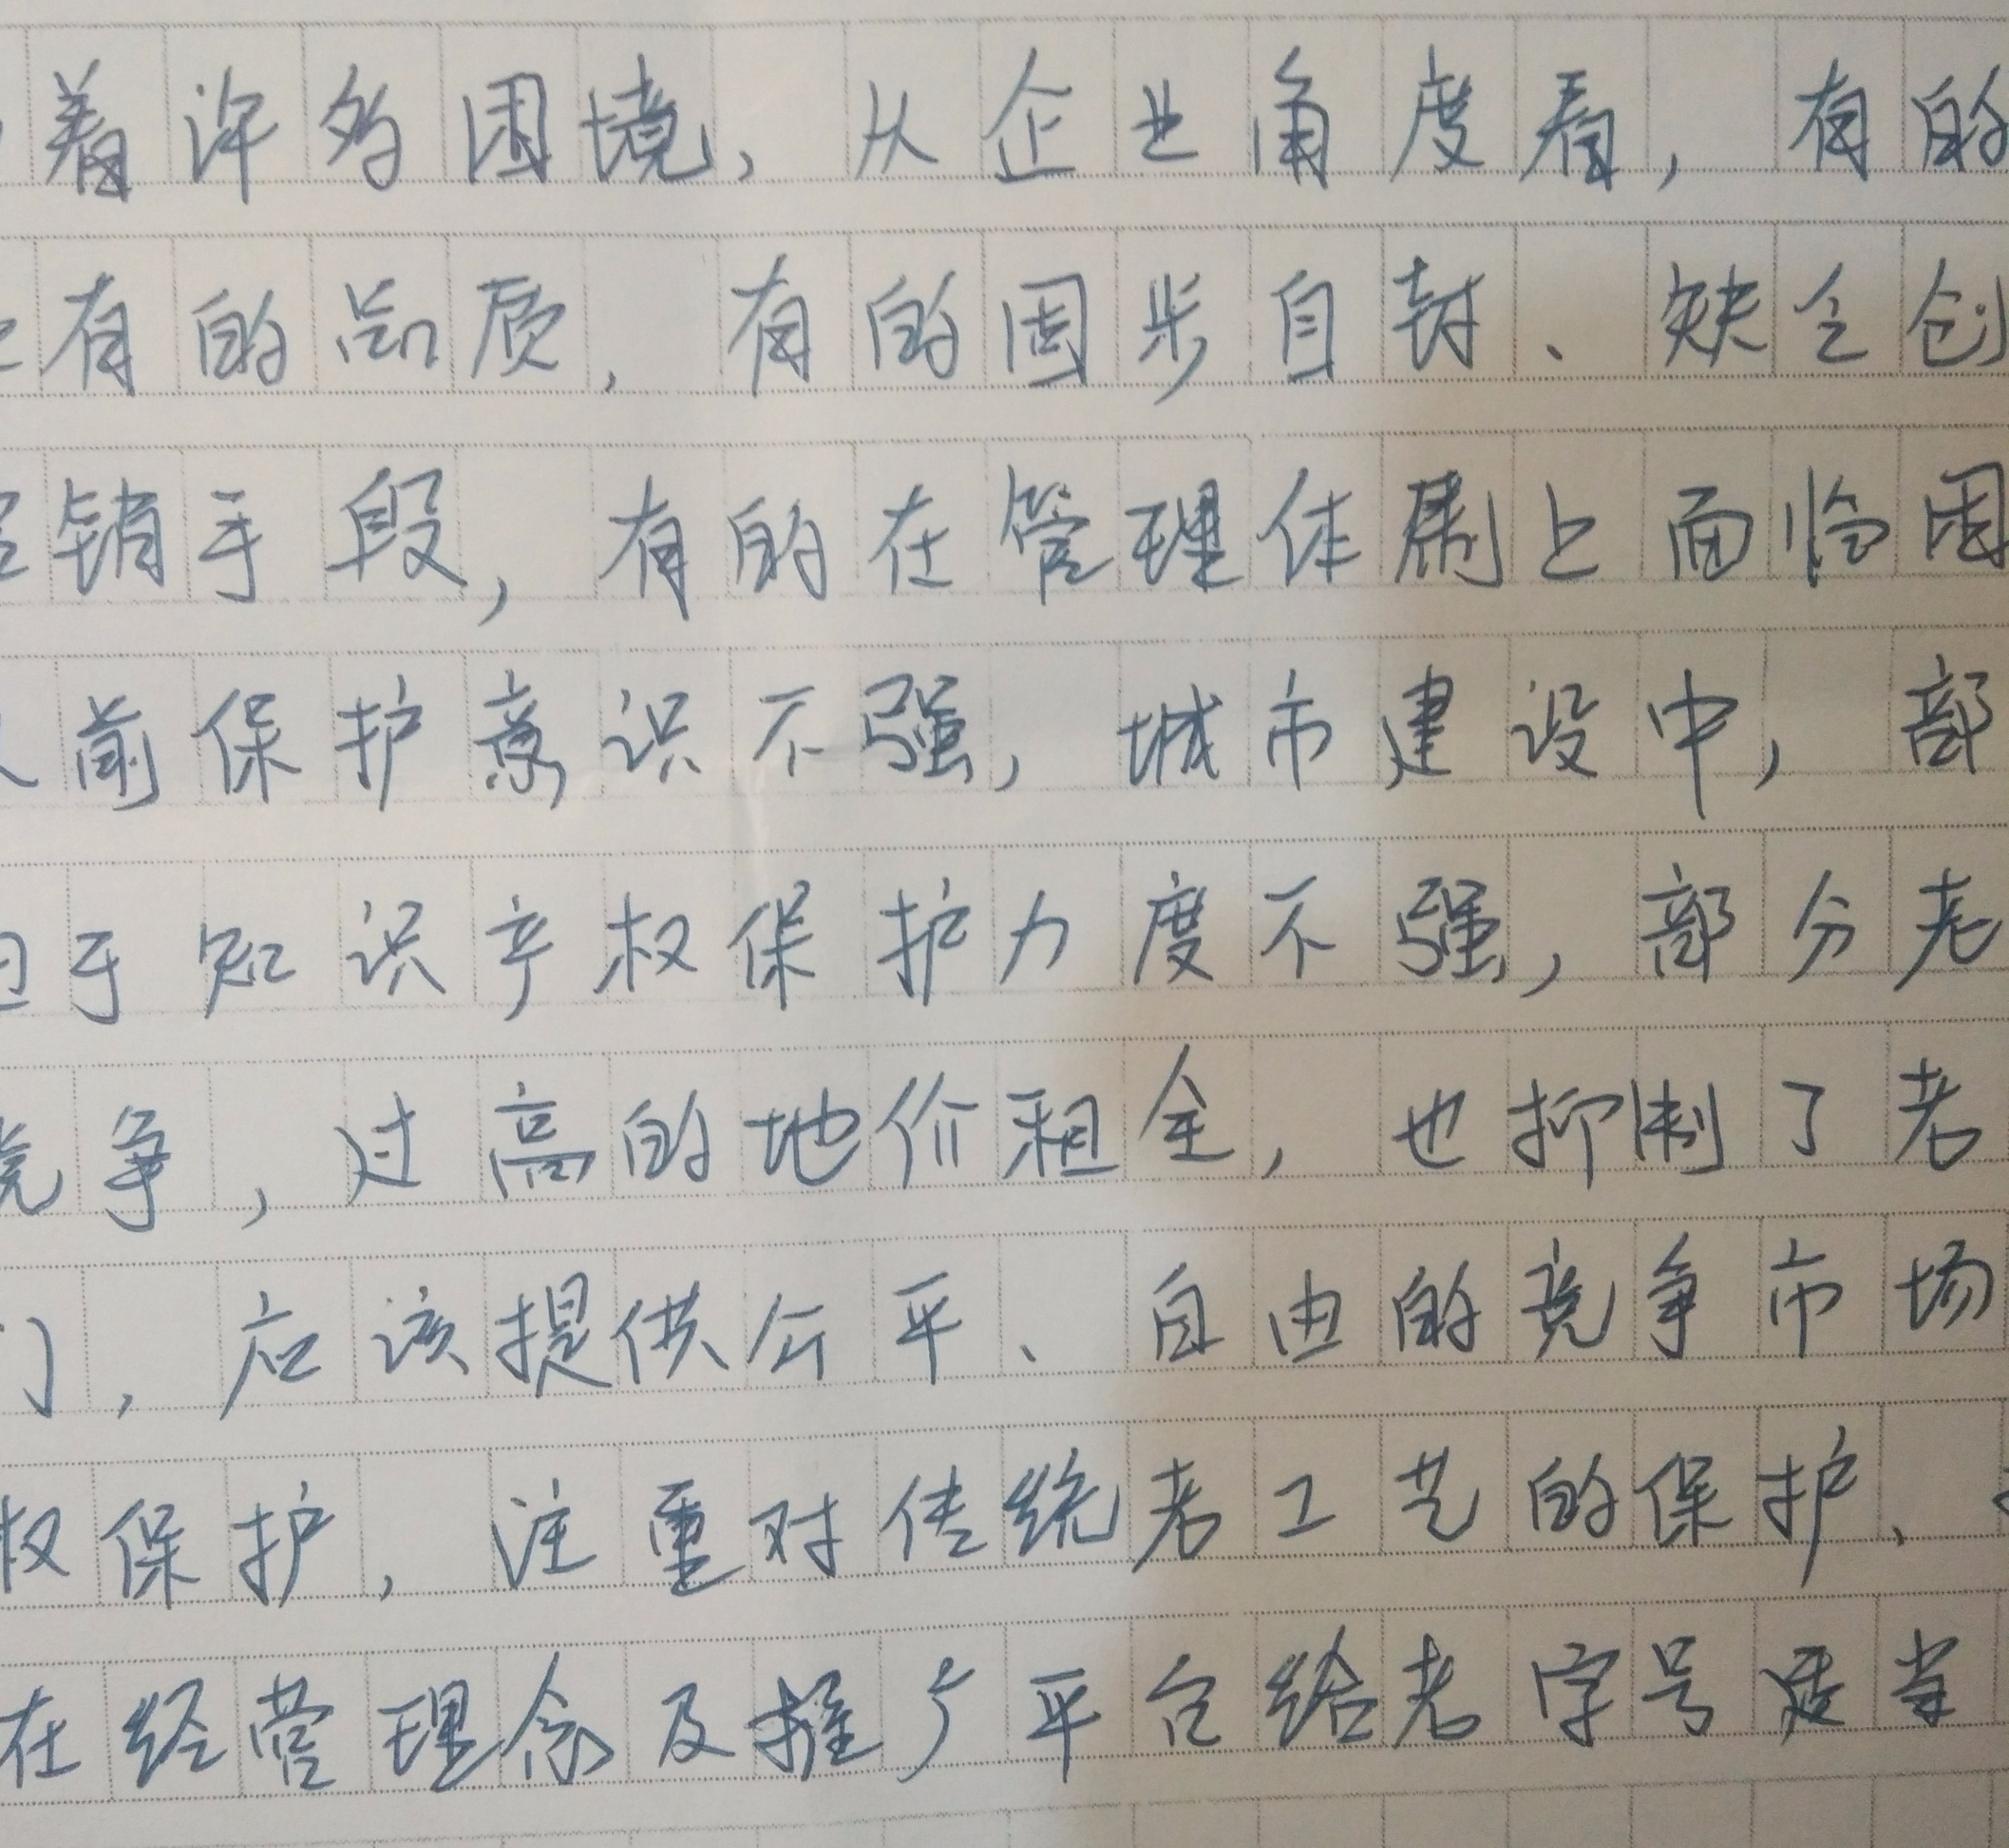 着许多困境，从企业角度看，有的
有的品质，有的固步自封、缺乏创
销手段，有的在管理体制上面临困
前保护意识不强，城市建设中，部
于知识产权保护力度不强，部分老
竞争，过高的地价租金，也抑制了老
门，应该提供公平、自由的竞争市场
权保护，注重对传统老工艺的保护、
在经营理念及推广平台给老字号适当